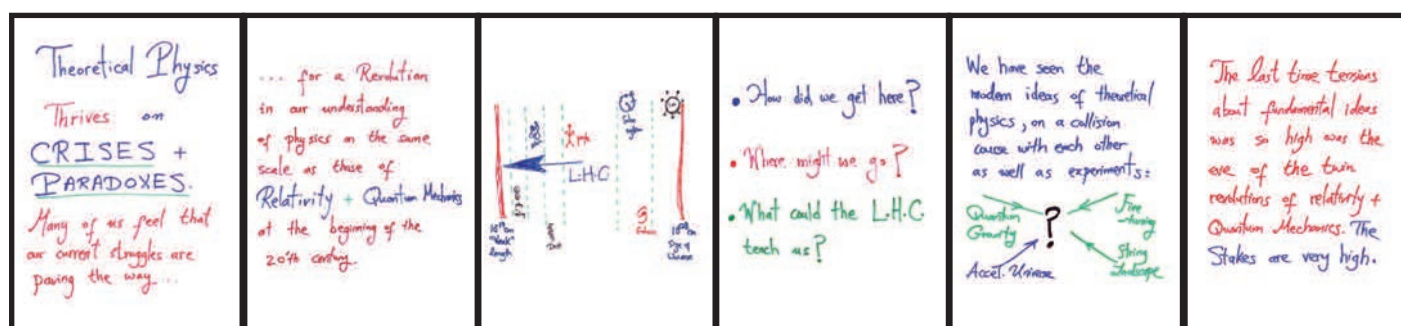 Theoretical Physics
Thrives on
CRISES +
PARADOXES.
Many of us feel that
our current struggles are
paving the way...
... for a Revolution
in our understanding
of physics on the same
scale as those of
Relativity + Quantum Mechanics
at the beginning of the
20th century.
L.H.C
"Weak"
length
Size of
Universe
• How did we get here?
• Where might we go?
• What could the L.H.C.
teach us?
We have seen the
modern ideas of theoretical
physics, on a collision
course with each other
as well as experiments:
Quantum
Gravity
Fine
-tuning
?
String
landscape
Accel. Universe
The last time tensions
about fundamental ideas
was so high was the
eve of the twin
revolutions of relativity +
Quantum Mechanics. The
Stakes are very high.